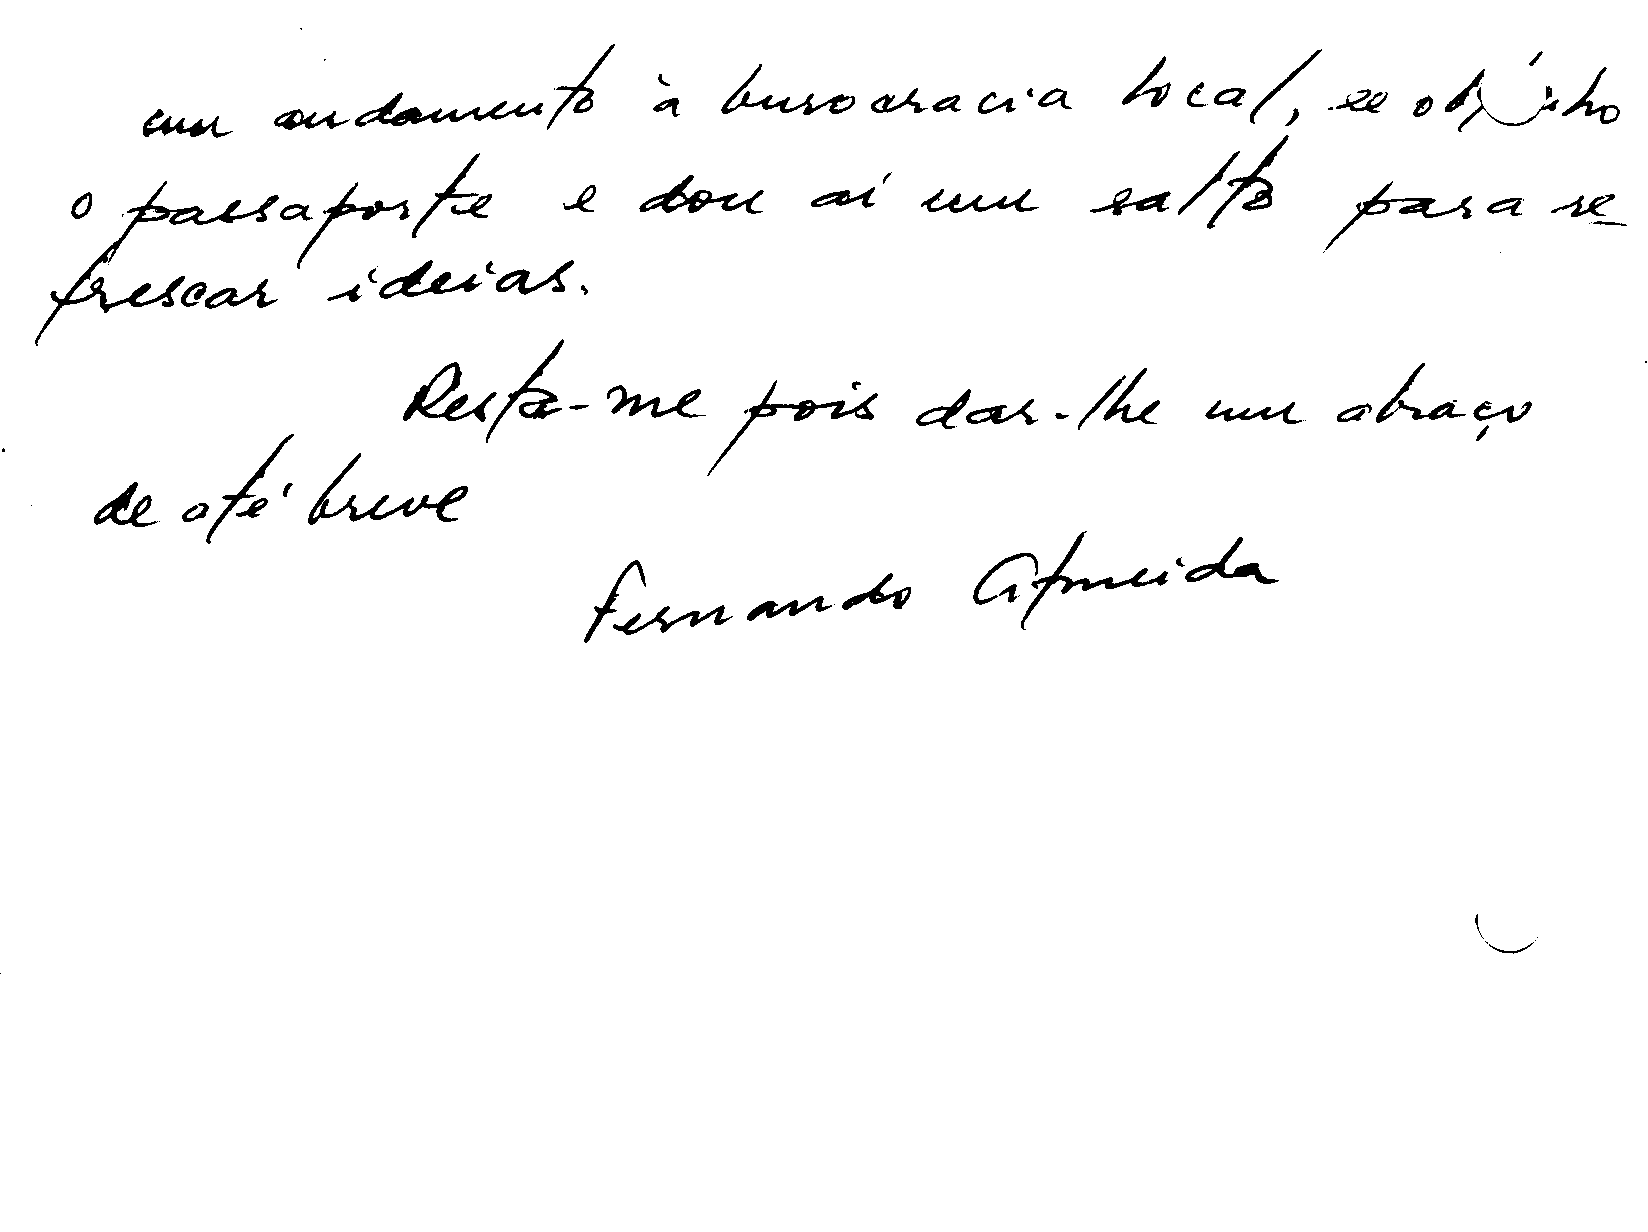 um andamento à burocracia local, se
o passaporte e dou aí um salto para re-
frescar ideias.
Resta-me pois dar-lhe um abraço
de até breve
Fernando Almeida